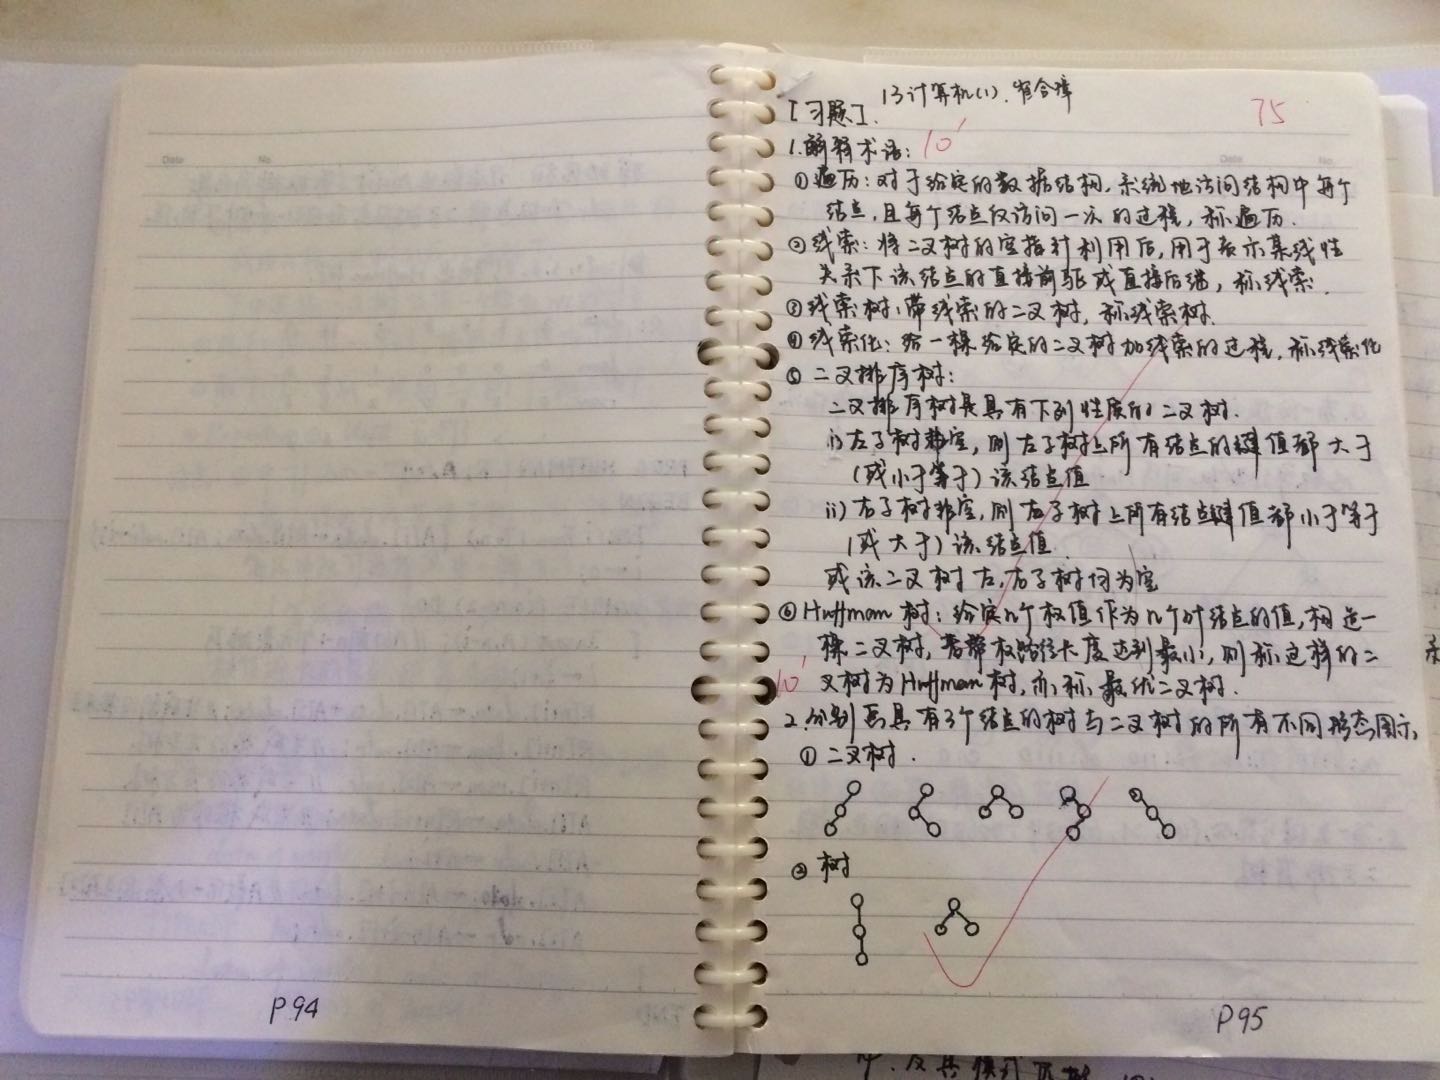 13计算机(1).
75
[习题].
1.解释术语: 10'
①遍历:对于给定的数据结构,系统地访问结构中每个
结点,且每个结点仅访问一次的过程,称遍历.
②线索:将二叉树的空指针利用后,用于表示某线性
关系下该结点的直接前驱或直接后继,称线索.
③线索树:带线索的二叉树,称线索树.
④线索化:给一棵给定的二叉树加线索的过程,称线索化
⑤二叉排序树:
二叉排序树是具有下列性质的二叉树.
i)左子树非空,则左子树上所有结点的键值都大于
(或小于等于)该结点值
ii)右子树非空,则右子树上所有结点键值都小于等于
(或大于)该结点值.
或该二叉树左,右子树均为空
⑥Huffman树:给定n个权值作为n个叶结点的值,构造一
棵二叉树,若带权路径长度达到最小,则称这样的二
10' 叉树为Huffman树,亦称最优二叉树.
2.分别画具有3个结点的树与二叉树的所有不同形态图示.
①二叉树.
②树
P94
P95